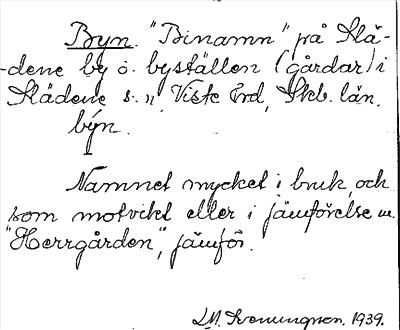 Byn. "Binamn" på Slä-
-dene by o. byställen (gårdar) i
Slädene s:n Viste hrd, Skb. län.
býn.
Namnet mycket i bruk och
som motvikt eller i jämförelse m.
"Herrgården", jämför.
1939.